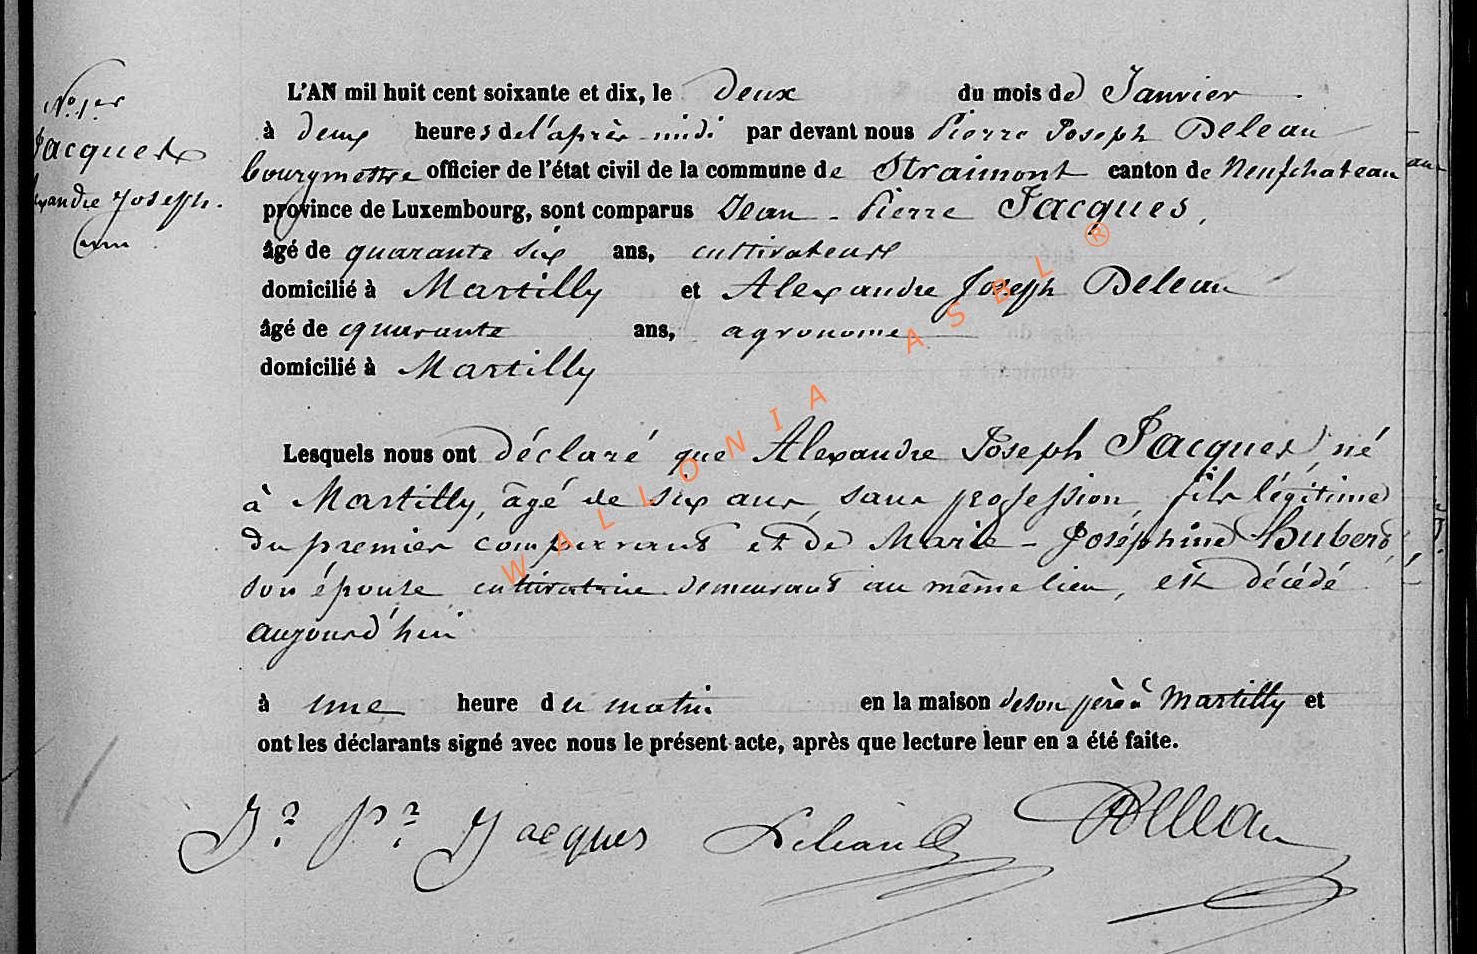 No 1er
Jacques
Alexandre Joseph.
L'AN mil huit cent soixante et dix, le deux du mois de Janvier
à deux heures de l'après-midi par devant nous Pierre Joseph Deleau
bourgmestre officier de l'état civil de la commune de Straimont canton de Neufchateau
province de Luxembourg, sont comparus Jean-Pierre Jacques,
âgé de quarante six ans, cultivateur
domicilié à Martilly et Alexandre Joseph Deleau
âgé de quarante ans, agronome
domicilié à Martilly
Lesquels nous ont déclaré que Alexandre Joseph Jacques, né
à Martilly, âgé de six ans, sans profession, fils légitime
du premier comparant et de Marie-Joséphine Hubert,
son épouse cultivatrice demeurant au même lieu, est décédé
aujourd'hui
à une heure du matin en la maison de son père à Martilly et
ont les déclarants signé avec nous le présent acte, après que lecture leur en a été faite.
Jn. Pre. Jacques Deleau Deleau
WALLONIA ASBL ®